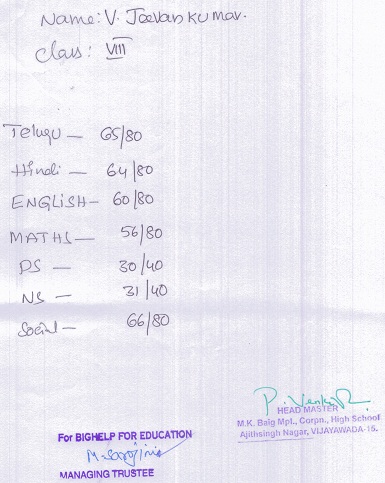 Name: V. Jeevan kumar.
Class: VIII
Telugu — 65/80
Hindi — 64/80
ENGLISH — 60/80
MATHS — 56/80
PS — 30/40
NS — 31/40
Social — 66/80
P. Venk
HEAD MASTER
M.K. Baig Mpl., Corpn., High School
Ajithsingh Nagar, VIJAYAWADA-15.
For BIGHELP FOR EDUCATION
M. Sarojini
MANAGING TRUSTEE